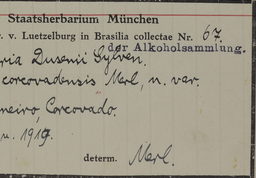 Staatsherbarium München
. v. Luetzelburg in Brasilia collectae Nr. 67.
der Alkoholsammlung.
ria Dusenii Sylvén.
corcovadensis Merl, n. var.
neiro, Corcovado.
1919
determ. Merl.